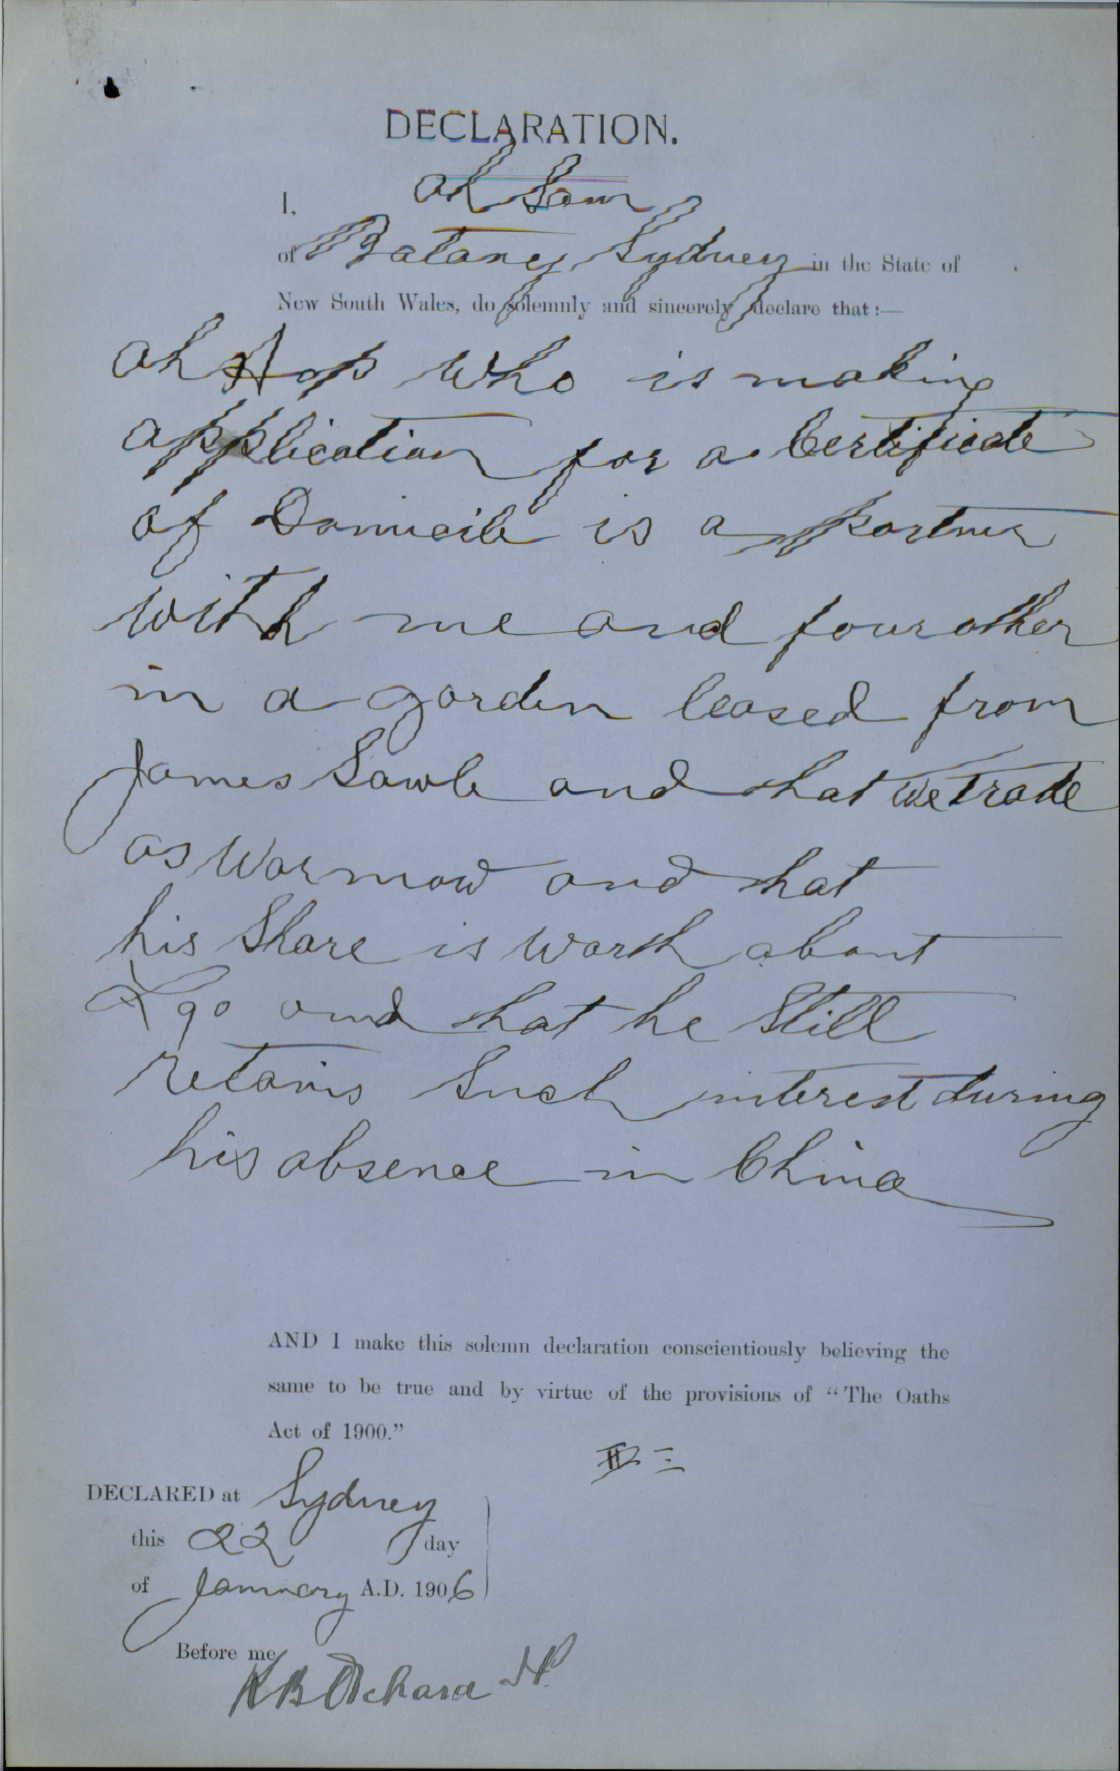 DECLARATION.
I, Ah Sam
of Botany Sydney in the State of
New South Wales, do solemnly and sincerely declare that:—
Ah Hop who is making
application for a Certificate
of Domicile is a partner
with me and four other
in a garden leased from
James Sawle and that we trade
as War mow and that
his Share is worth about
£90 and that he Still
retains Such interest during
his absence in China
AND I make this solemn declaration conscientiously believing the
same to be true and by virtue of the provisions of "The Oaths
Act of 1900."
DECLARED at Sydney
this 22 day
of January A.D. 1906
Before me
JP